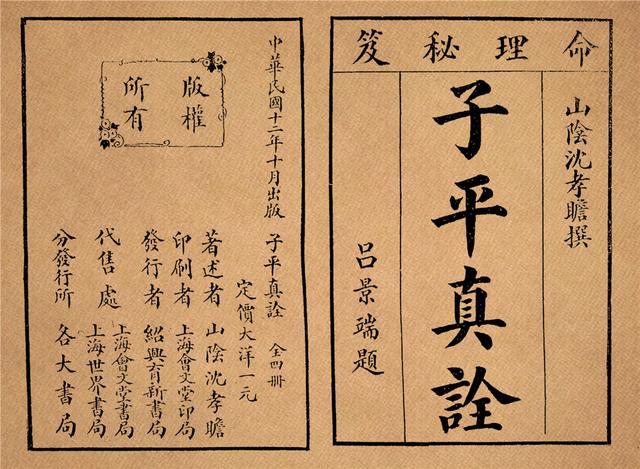 命理秘笈
山陰沈孝瞻撰
子平真詮
呂景端題
中華民國十二年十月出版
版權
所有
子平真詮 全四冊
定價大洋一元
著述者 山陰沈孝瞻
印刷者 上海會文堂印局
發行者 紹興育新書局
代售處 上海會文堂書局
上海世界書局
分發行所 各大書局